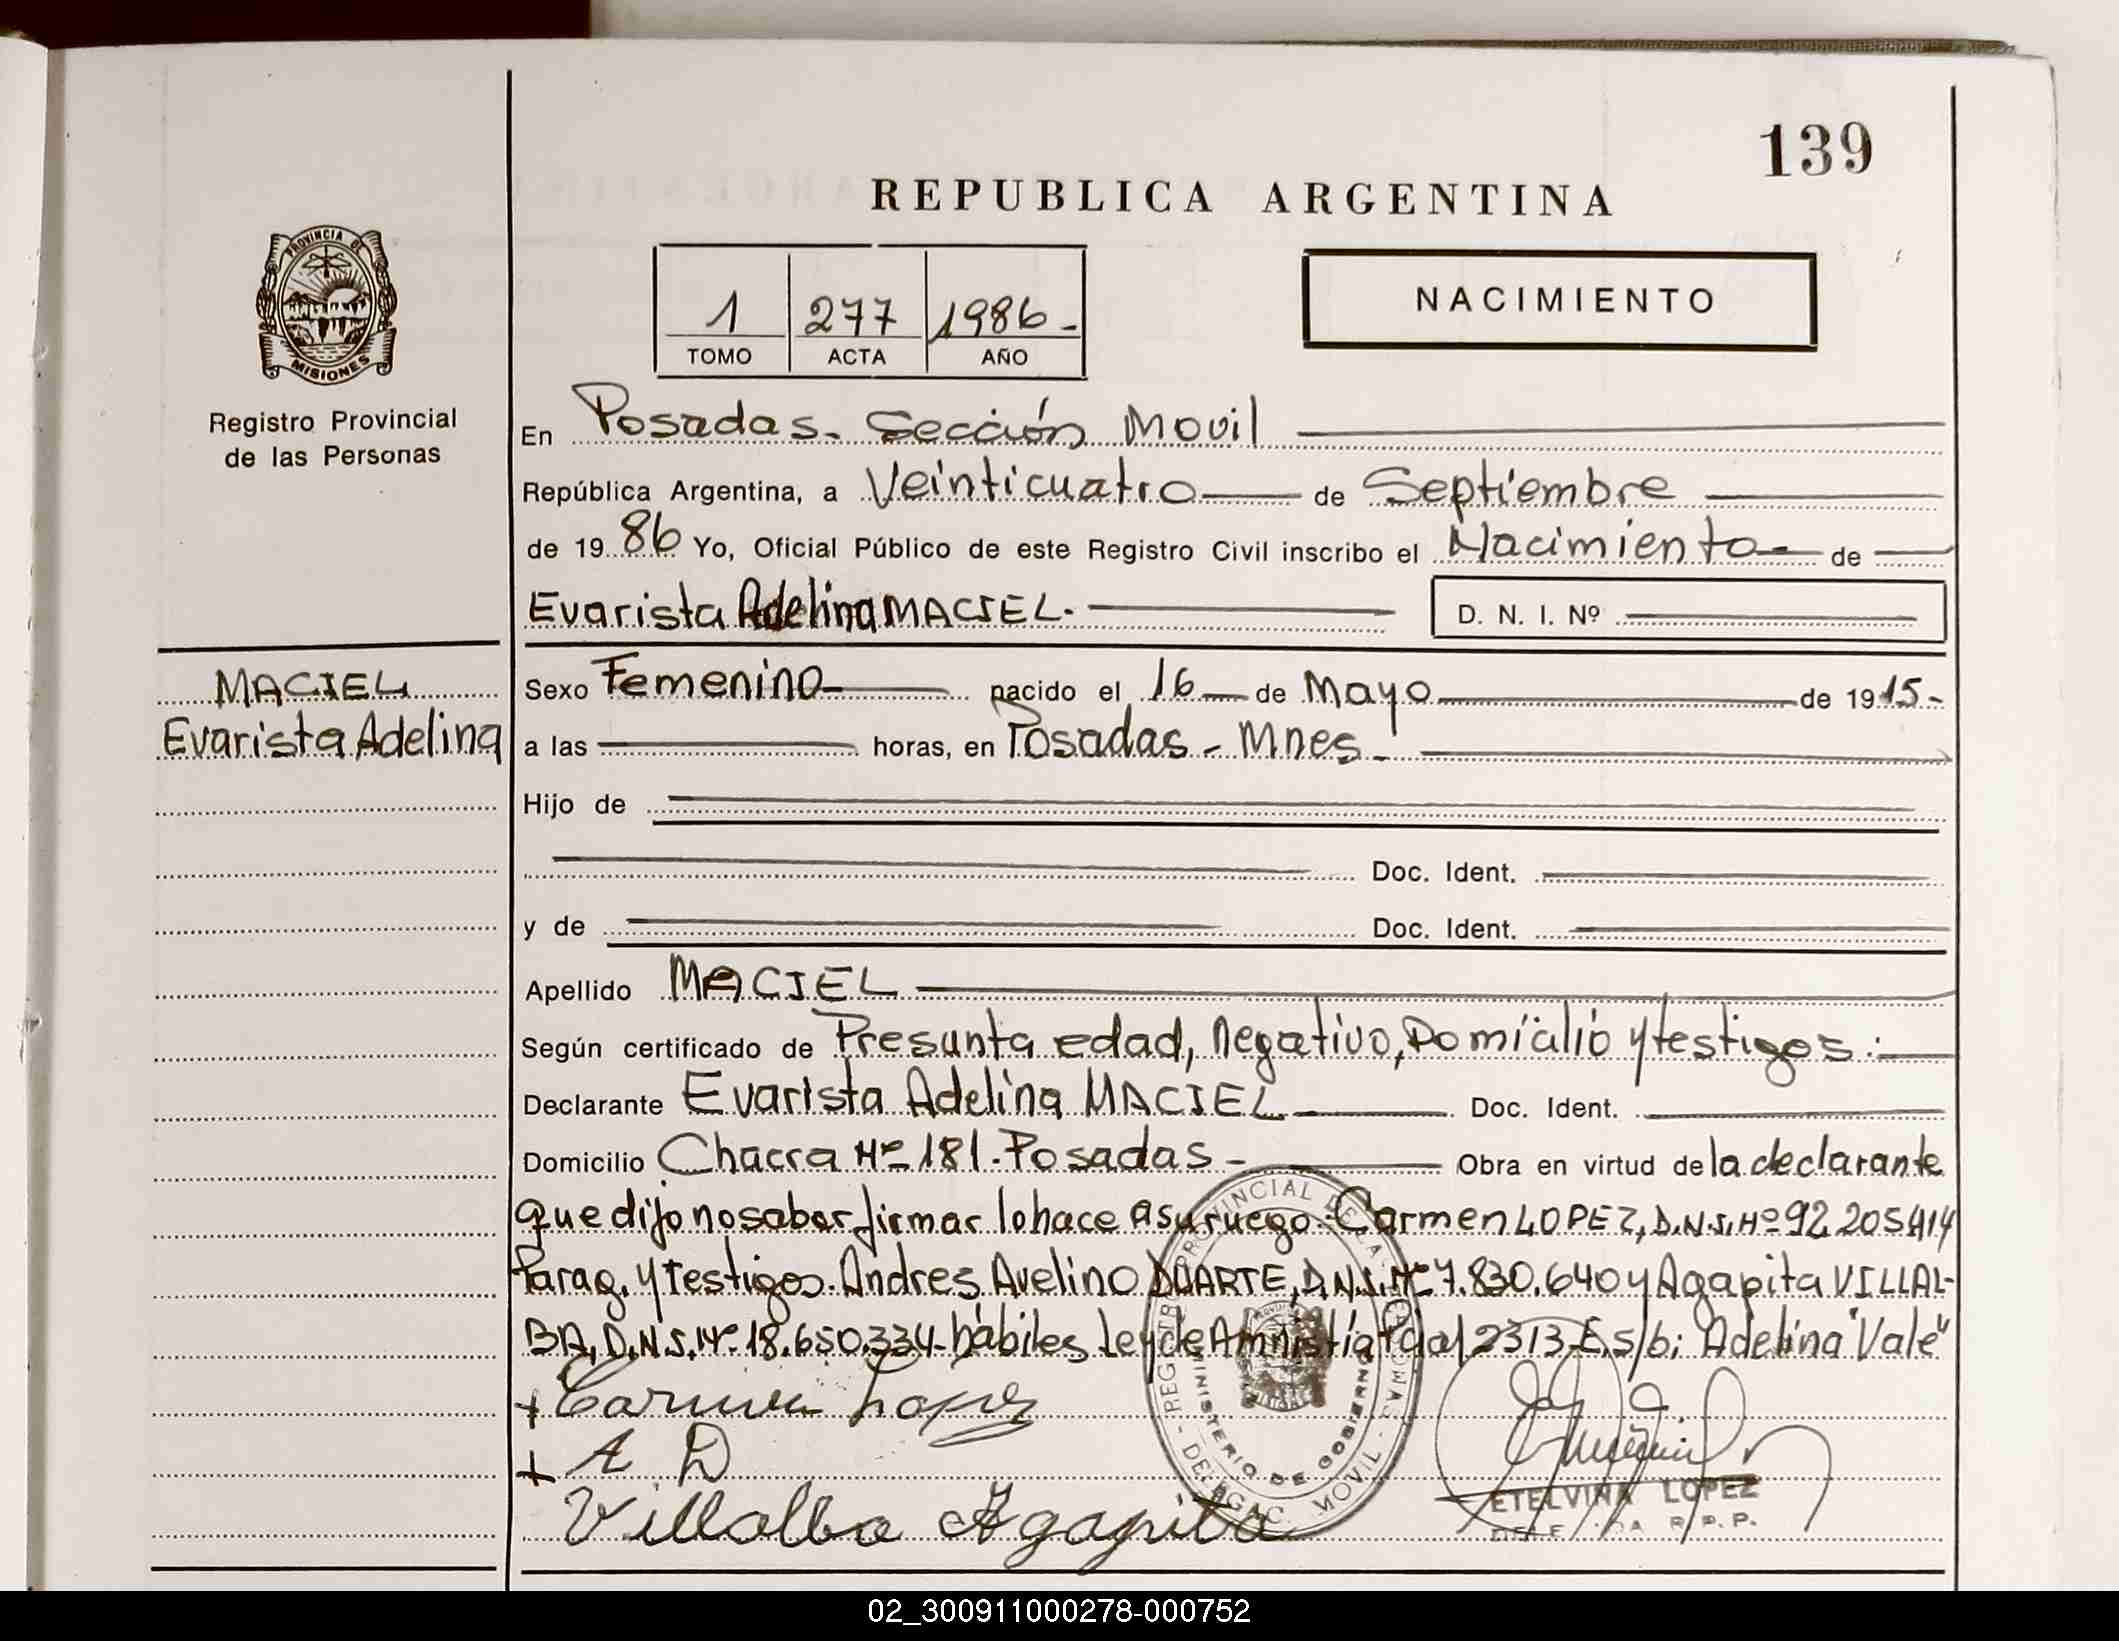 139
REPUBLICA ARGENTINA
PROVINCIA DE
MISIONES
1 277 1986-
TOMO ACTA AÑO
NACIMIENTO
Registro Provincial
de las Personas
En Posadas. Sección Movil
República Argentina, a Veinticuatro de Septiembre
de 19 86 Yo, Oficial Público de este Registro Civil inscribo el Nacimiento de
Evarista Adelina MACIEL.
D. N. I. Nº
MACIEL
Evarista Adelina
Sexo Femenino nacido el 16 de Mayo de 19 15-
a las horas, en Posadas - Mnes.
Hijo de
Doc. Ident.
y de Doc. Ident.
Apellido MACIEL
Según certificado de Presunta edad, Negativo, Domicilio y testigos:
Declarante Evarista Adelina MACIEL Doc. Ident.
Domicilio Chacra Nº 181. Posadas - Obra en virtud de la declarante
que dijo no saber firmar lo hace a su ruego: Carmen LOPEZ, D.N.I. Nº 92 205414
Parag. y testigos. Andres Avelino DUARTE, D.N.I. Nº 7.830.640 y Agapita VILLAL-
BA, D.N.I. Nº 18.650.334-hábiles Ley de Amnistía Pcial 2313-E.s/b; Adelina "Vale"
+ Carmen Lopez
+ A D
Villalba Agapita
REGISTRO PROVINCIAL DE LAS PERSONAS
MINISTERIO DE GOBIERNO
DELEGAC. MOVIL
ETELVINA LOPEZ
R. P. P.
02_300911000278-000752